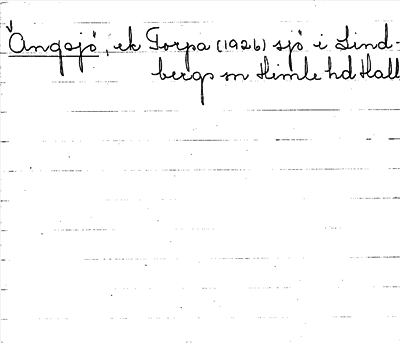 Ängsjö, ek Torpa (1926) sjö i Lind-
bergs sn Himle hd Hall